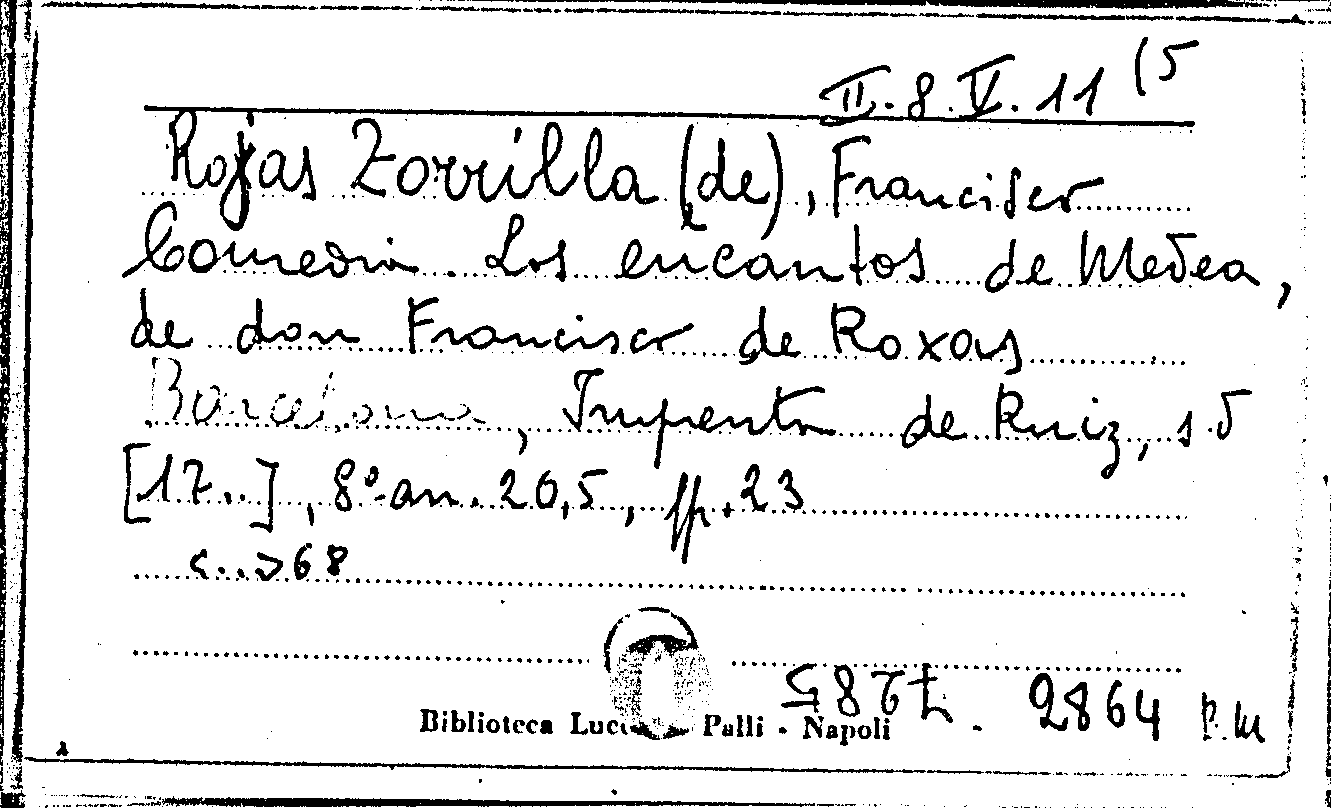 II.8.V.11 (5
Rojas Zorrilla (de), Francisco
Comedia. Los encantos de Medea,
de don Francisco de Roxas
Barcelona, Imprenta de Ruiz, s.d
[17..], 8° an. 20,5, pp. 23
<..>68
72875 - 2864 P.M
Biblioteca Palli - Napoli